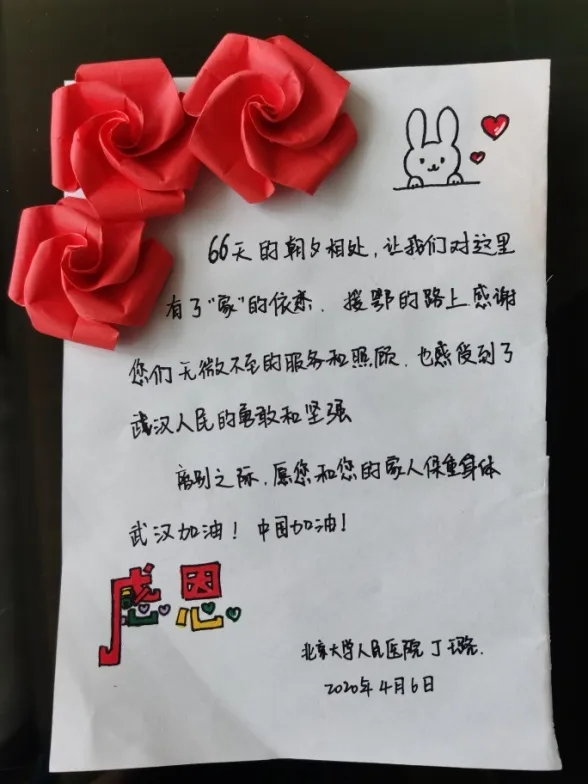 66天的朝夕相处，让我们对这里
有了“家”的依恋．援鄂的路上感谢
您们无微不至的服务和照顾．也感受到了
武汉人民的勇敢和坚强
离别之际．愿您和您的家人保重身体
武汉加油！中国加油！
感恩
北京大学人民医院 丁璐．
2020年4月6日